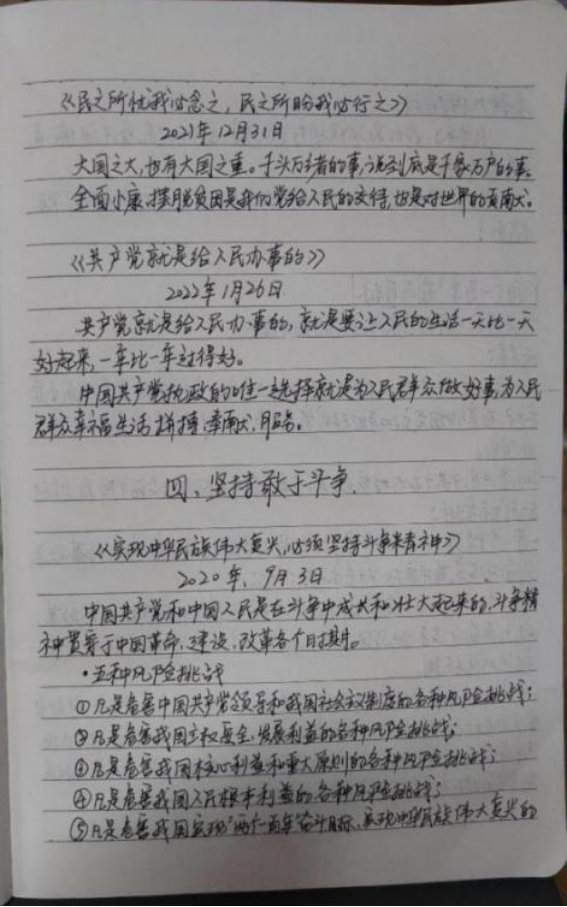 《民之所忧我必念之，民之所盼我必行之》
2021年12月31日
大国之大，也有大国之重。千头万绪的事，说到底是千家万户的事。
全面小康、摆脱贫困是我们党给人民的交待，也是对世界的贡献。
《共产党就是给人民办事的》
2022年1月26日
共产党就是给人民办事的，就是要让人民的生活一天比一天
好起来，一年比一年过得好。
中国共产党执政的唯一选择就是为人民群众做好事，为人民
群众幸福生活拼搏、奉献、服务。
四、坚持敢于斗争.
《实现中华民族伟大复兴，必须坚持斗争精神》
2020年，9月3日
中国共产党和中国人民是在斗争中成长和壮大起来的，斗争精
神贯穿于中国革命、建设、改革各个时期。
·五种风险挑战
①凡是危害中国共产党领导和我国社会主义制度的各种风险挑战；
②凡是危害我国主权安全、发展利益的各种风险挑战；
③凡是危害我国核心利益和重大原则的各种风险挑战；
④凡是危害我国人民根本利益的各种风险挑战；
⑤凡是危害我国实现“两个一百年”奋斗目标、实现中华民族伟大复兴的